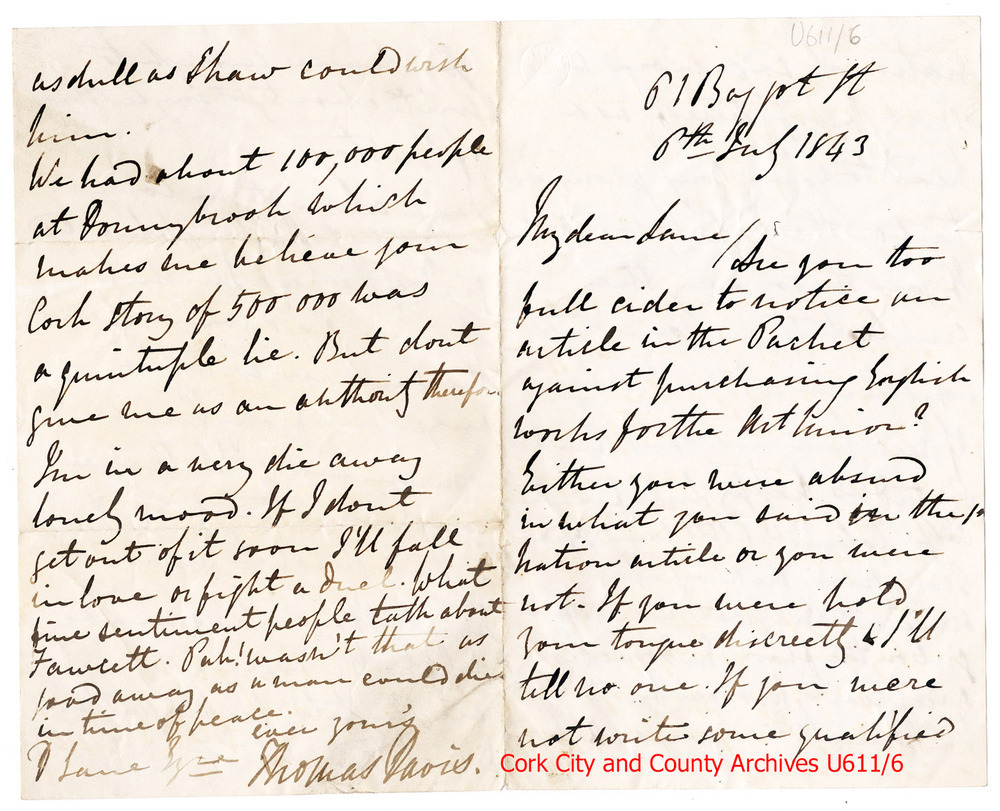 U611/6
61 Baggot St
6th July 1843
My dear Lane/
Are you too
full cider to notice an
article in the Packet
against purchasing English
works for the Art Union?
Either you were absurd
in what you said in the
Nation article or you were
not. If you were hold
your tongue discreetly & I'll
tell no one. If you were
not write some qualified
as dull as Shaw could wish
him.
We had about 100,000 people
at Donnybrook which
makes me believe your
Cork story of 500 000 was
a quintuple lie. But dont
give me as an authority therefor.
I'm in a very die away
lonely mood. If I dont
get out of it soon I'll fall
in love or fight a duel. What
fine sentiment people talk about
Fawcett. Pah! wasn't that as
good a way as a man could die
in time of peace.
ever yours
D Lane Esqre Thomas Davis.
Cork City and County Archives U611/6